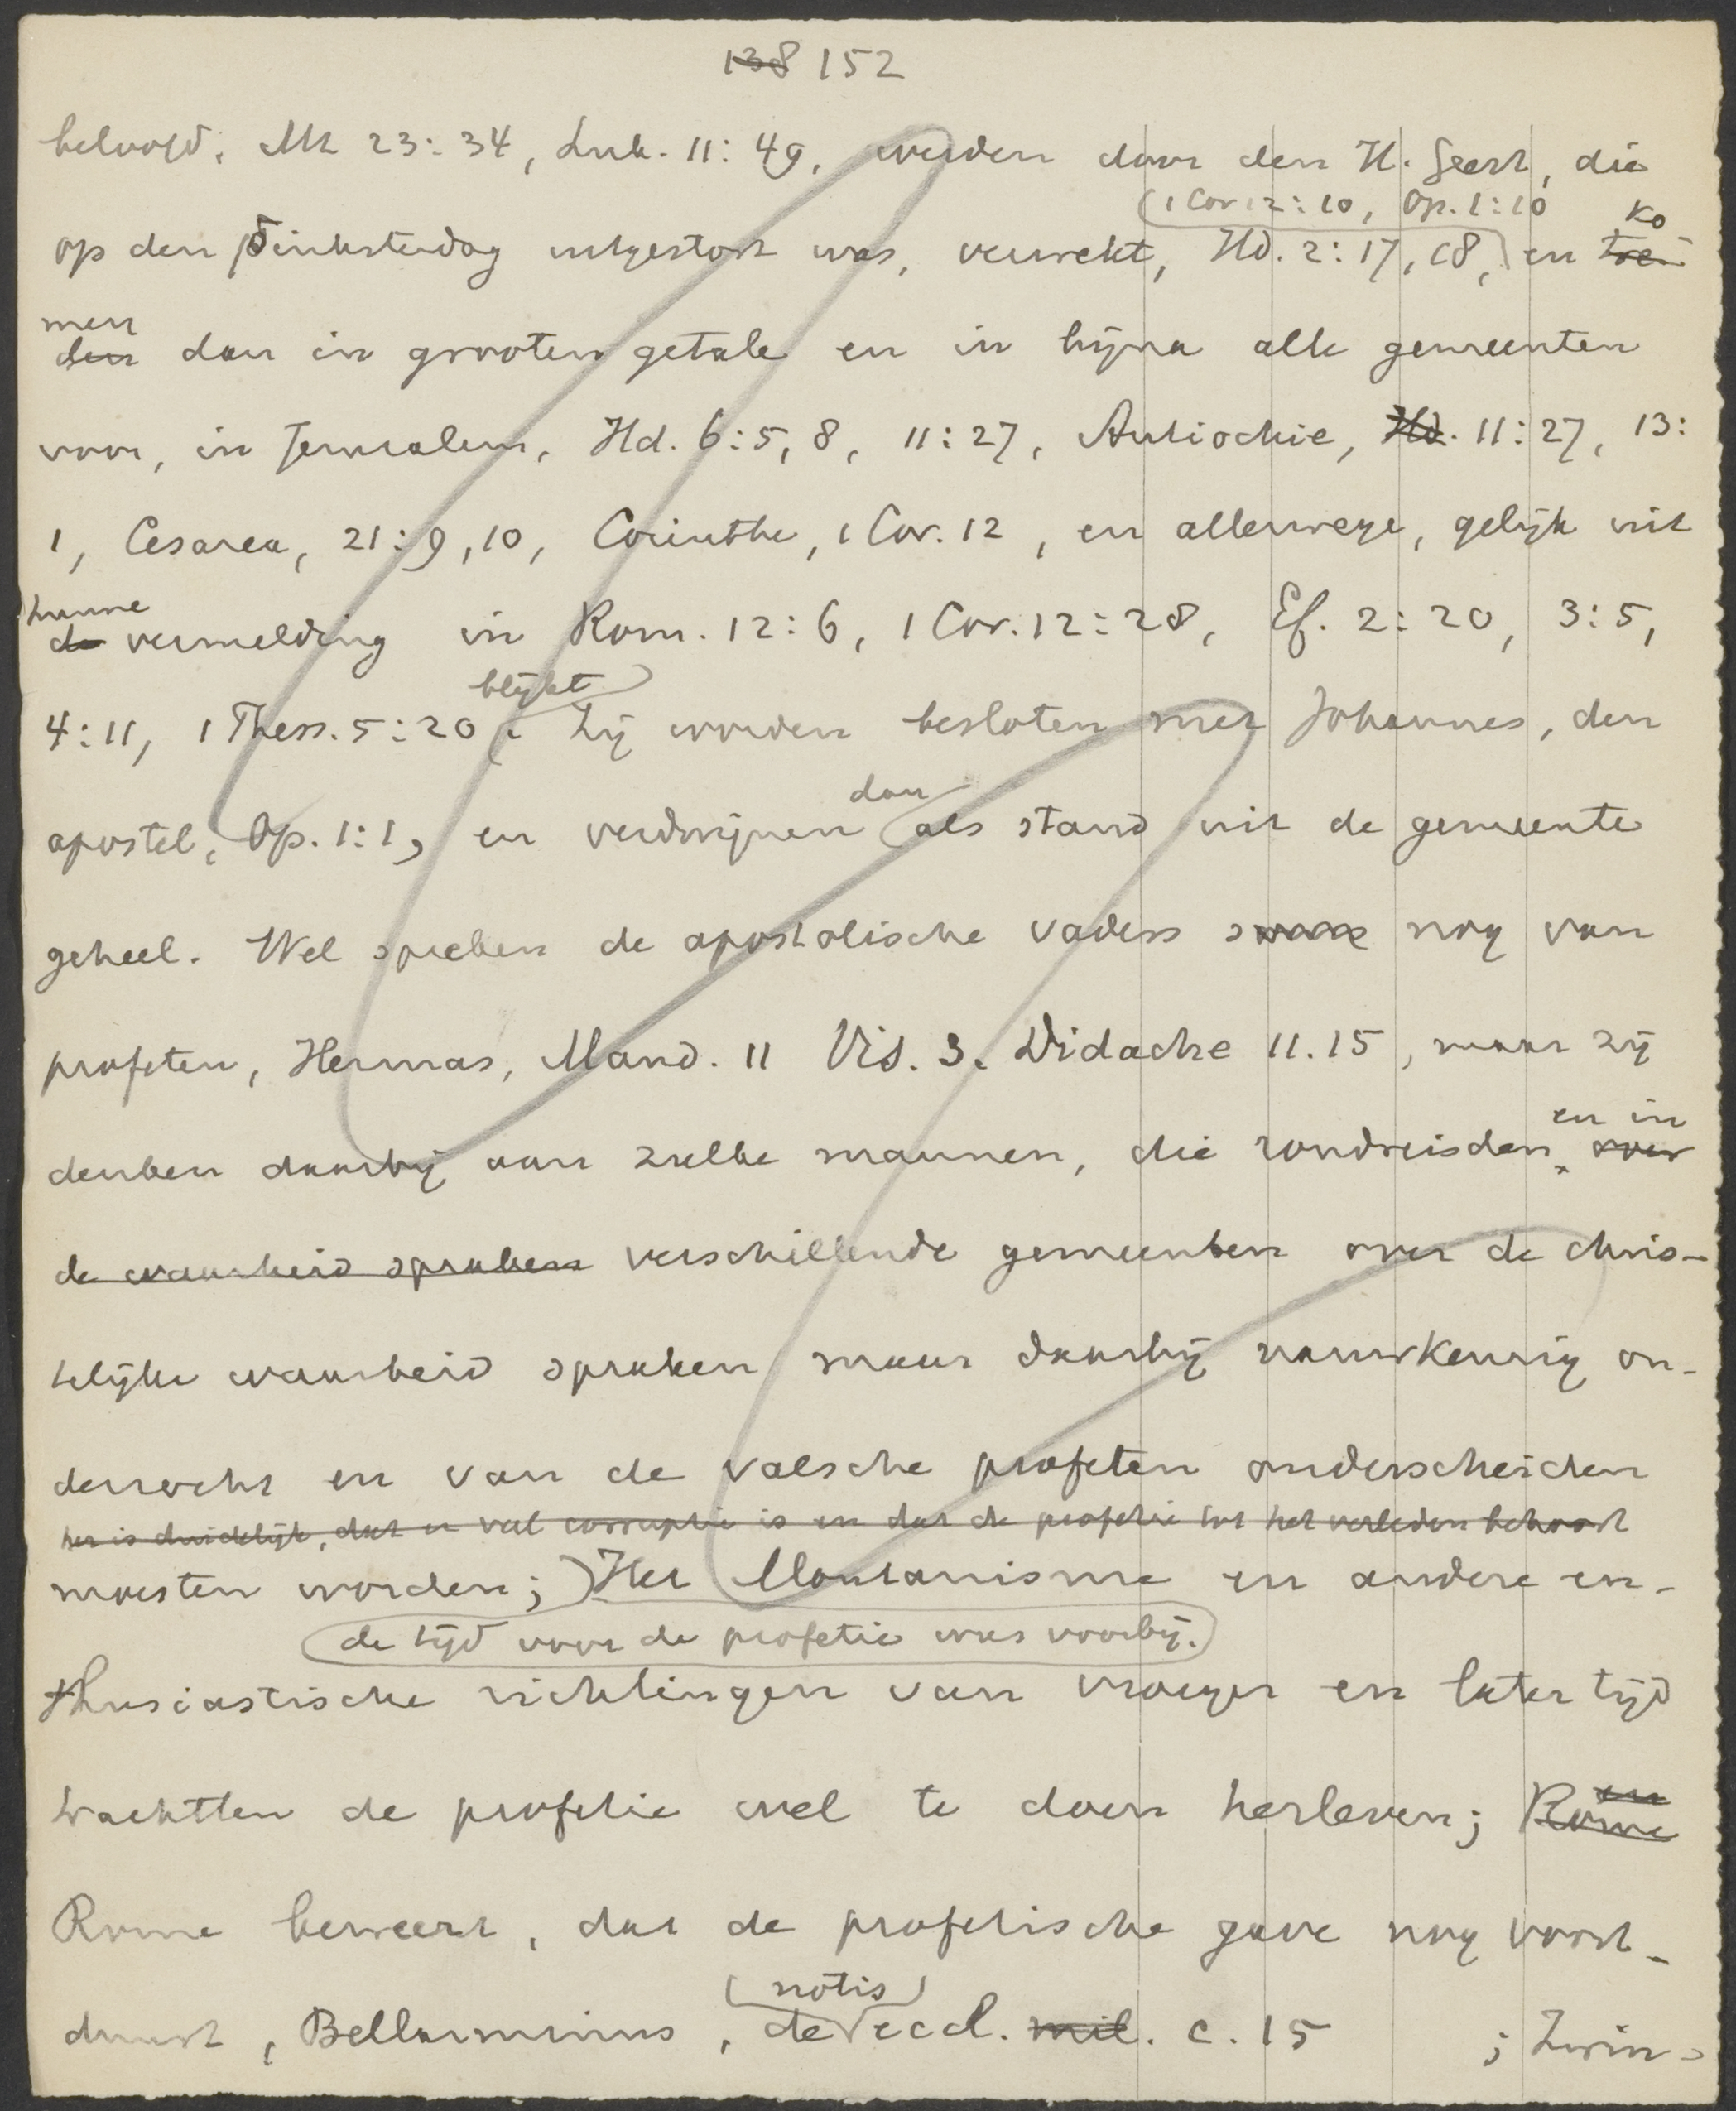 138 152
beloofd, Mt 23:34, Luk. 11:49, werden door den H. Geest, die
(1 Cor 12:10, Op. 1:10
op den Pinksterdag uitgestort was, verwekt, Hd. 2:17, 18,) en tre ko
men
den dan in grooten getale en in bijna alle gemeenten
voor, in Jerusalem, Hd. 6:5, 8, 11:27, Antiochie, Hd. 11:27, 13:
1, Cesarea, 21:9, 10, Corinthe, 1 Cor. 12, en allerwege, gelijk uit
hunne
de vermelding in Rom. 12:6, 1 Cor. 12:28, Ef. 2:20, 3:5,
blijkt
4:11, 1 Thess. 5:20. Zij worden besloten met Johannes, den
dan
apostel, Op. 1:1, en verdwijnen als stand uit de gemeente
geheel. Wel spreken de apostolische vaders nog van
profeten, Hermas, Mand. 11 Vis. 3. Didache 11.15, maar zij
en in
denken daarbij aan zulke mannen, die rondreisden, over
de waarheid spraken verschillende gemeenten over de chris-
telijke waarheid spraken maar daarbij nauwkeurig on-
derzocht en van de valsche profeten onderscheiden
het is duidelijk, dat er veel corruptie is en dat de profetie tot het verleden behoort
moesten worden; Het Montanisme en andere en-
(de tijd voor de profetie was voorbij.)
thusiastische richtingen van vroeger en later tijd
trachtten de profetie wel te doen herleven; en Rome
Rome beweert, dat de profetische gave nog voort-
(notis)
duurt, Bellarminus, de eccl. mil. c. 15 ; Zwin-